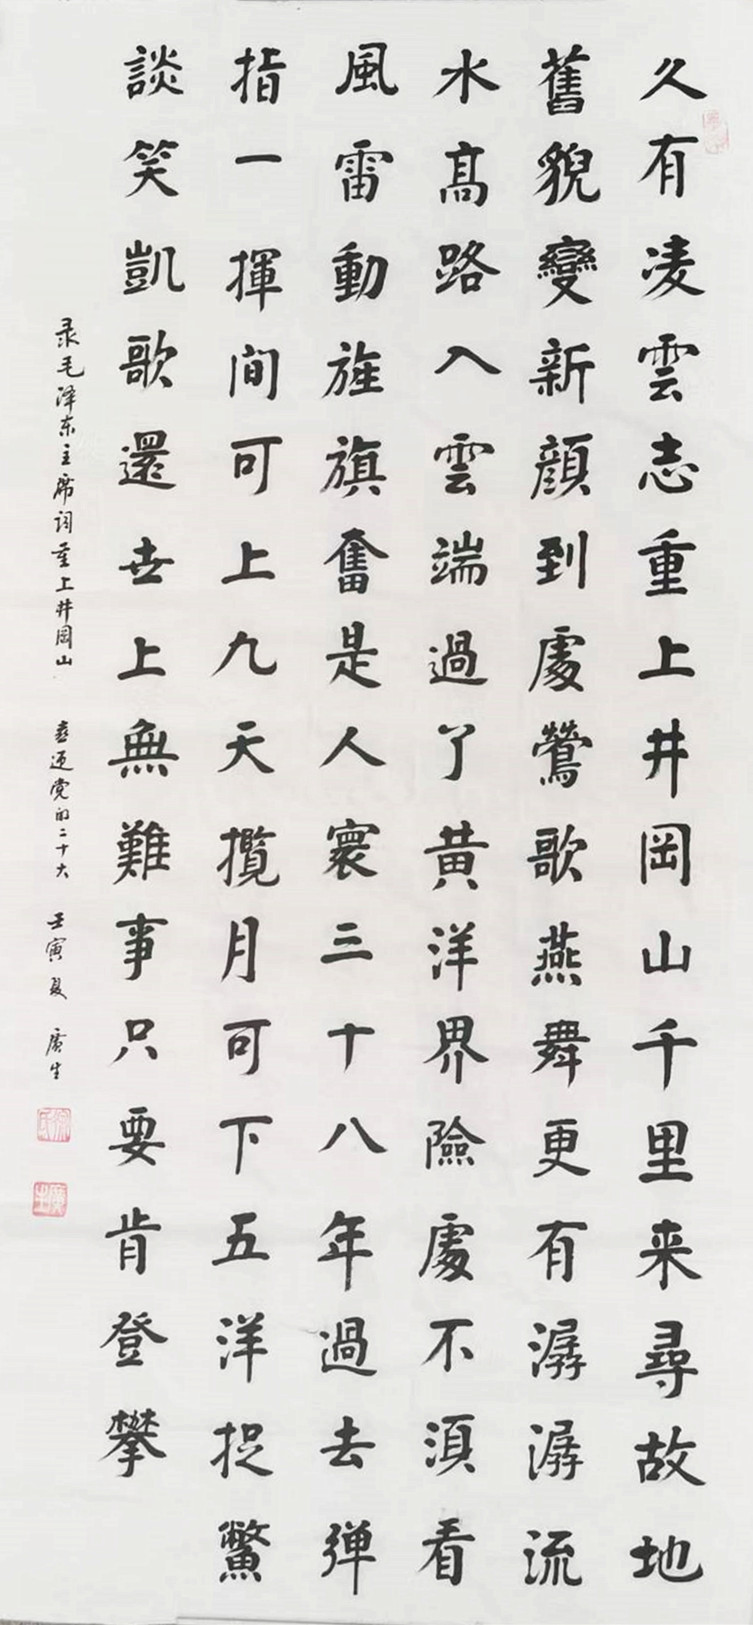 久有凌雲志重上井岡山千里来尋故地
舊貌變新顔到處鶯歌燕舞更有潺潺流
水高路入雲端過了黄洋界險處不須看
風雷動旌旗奮是人寰三十八年過去弹
指一揮间可上九天攬月可下五洋捉鱉
談笑凱歌還世上無難事只要肯登攀
录毛泽东主席词重上井岡山 喜迎党的二十大 壬寅夏 廣生